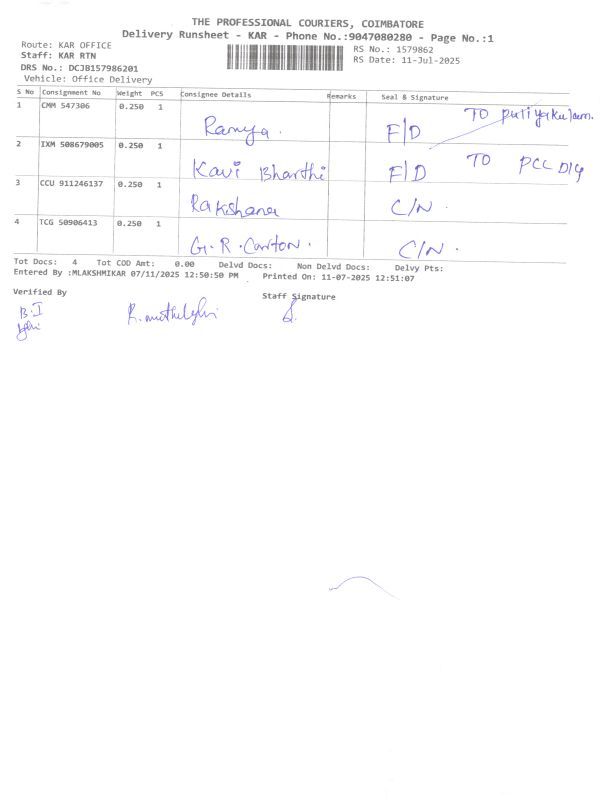 THE PROFESSIONAL COURIERS, COIMBATORE
Delivery Runsheet - KAR - Phone No.:9047080280 - Page No.:1
Route: KAR OFFICE RS No.: 1579862
Staff: KAR RTN RS Date: 11-Jul-2025
DRS No.: DCJB157986201
Vehicle: Office Delivery
S No Consignment No Weight PCS Consignee Details Remarks Seal & Signature
1 CMM 547306 0.250 1 Ranya. F/D TO puliyakulam.
2 IXM 508679005 0.250 1 Kavi Bharthi F/D TO PCC
3 CCU 911246137 0.250 1 Rakshana C/N.
4 TCG 50906413 0.250 1 G.R.Carton. C/N.
Tot Docs: 4 Tot COD Amt: 0.00 Delvd Docs: Non Delvd Docs: Delvy Pts:
Entered By :MLAKSHMIKAR 07/11/2025 12:50:50 PM Printed On: 11-07-2025 12:51:07
Verified By Staff Signature
B.I